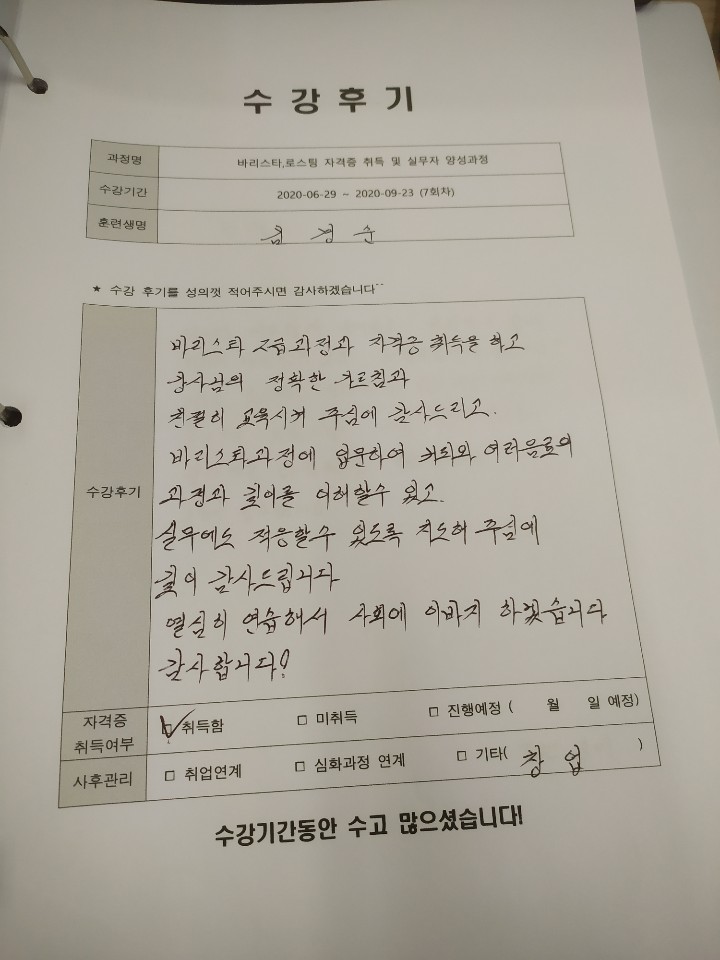 수강후기
과정명 바리스타,로스팅 자격증 취득 및 실무자 양성과정
수강기간 2020-06-29 ~ 2020-09-23 (7회차)
훈련생명 김경순
★ 수강 후기를 성의껏 적어주시면 감사하겠습니다^^
수강후기
바리스타 2급과정과 자격증 취득을 하고
강사님의 정확한 가르침과
친절히 교육시켜 주심에 감사드리고.
바리스타과정에 입문하여 커피와 여러음료의
과정과 깊이를 이해할수 있고.
실무에도 적응할수 있도록 지도해 주심에
깊이 감사드립니다
열심히 연습해서 사회에 이바지 하겠습니다
감사합니다!
자격증 취득여부 ☑ 취득함 □ 미취득 □ 진행예정 ( 월 일 예정)
사후관리 □ 취업연계 □ 심화과정 연계 □ 기타( 창업 )
수강기간동안 수고 많으셨습니다!